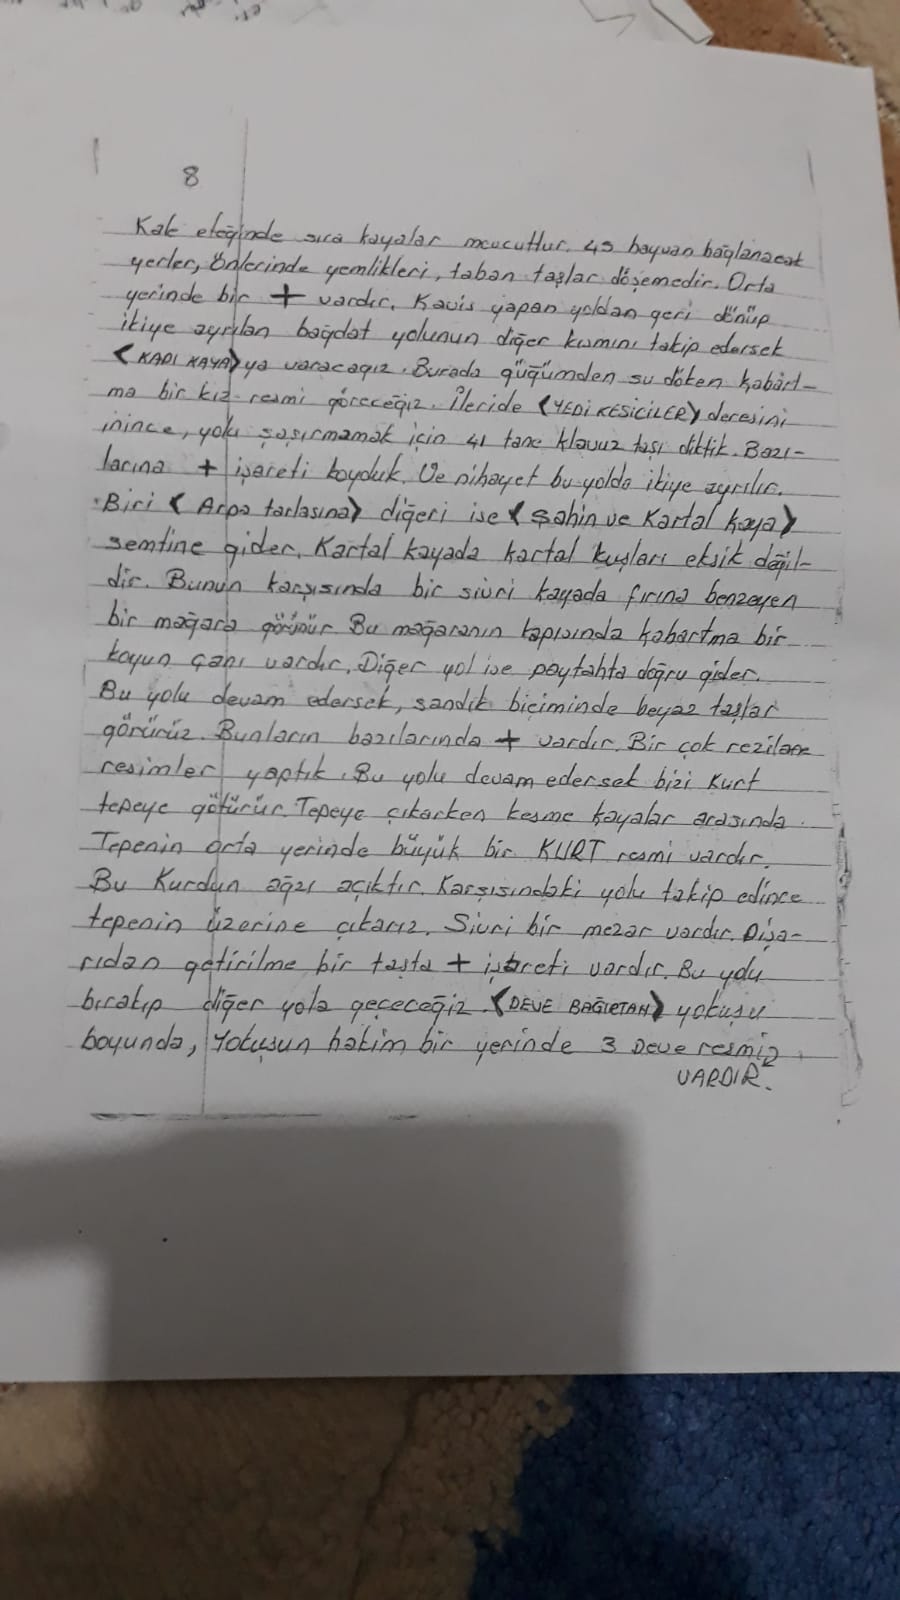 8
Kale eteğinde sıra kayalar mevcuttur. 45 hayvan bağlanacak
yerler, önlerinde yemlikleri, taban taşlar döşemedir. Orta
yerinde bir + vardır. Kavis yapan yoldan geri dönüp
ikiye ayrılan bağdat yolunun diğer kısmını takip edersek
<KADI KAYA> ya varacagız. Burada güğümden su döken kabart-
ma bir kız resmi göreceğiz. İleride <YEDİ KESİCİLER> deresini
inince, yolu şaşırmamak için 41 tane klavuz taşı diktik. Bazı-
larına + işareti koyduk. Ve nihayet bu yolda ikiye ayrılır.
Biri < Arpa tarlasına> diğeri ise < Şahin ve Kartal kaya>
semtine gider. Kartal kayada kartal kuşları eksik değil-
dir. Bunun karşısında bir sivri kayada fırına benzeyen
bir mağara görünür. Bu mağaranın kapısında kabartma bir
koyun çanı vardır. Diğer yol ise paytahta doğru gider.
Bu yolu devam edersek, sandık biçiminde beyaz taşlar
görürüz. Bunların bazılarında + vardır. Bir çok rezilane
resimler yaptık. Bu yolu devam edersek bizi Kurt
tepeye götürür. Tepeye çıkarken kesme kayalar arasında.
Tepenin orta yerinde büyük bir KURT resmi vardır.
Bu Kurdun ağzı açıktır. Karşısındaki yolu takip edince
tepenin üzerine çıkarız. Sivri bir mezar vardır. Dışa-
rıdan getirilme bir taşta + işareti vardır. Bu yolu
bırakıp diğer yola geçeceğiz. <DEVE BAĞIRTAN> yokuşu
boyunda, Yokuşun hakim bir yerinde 3 Deve resmi
VARDIR.